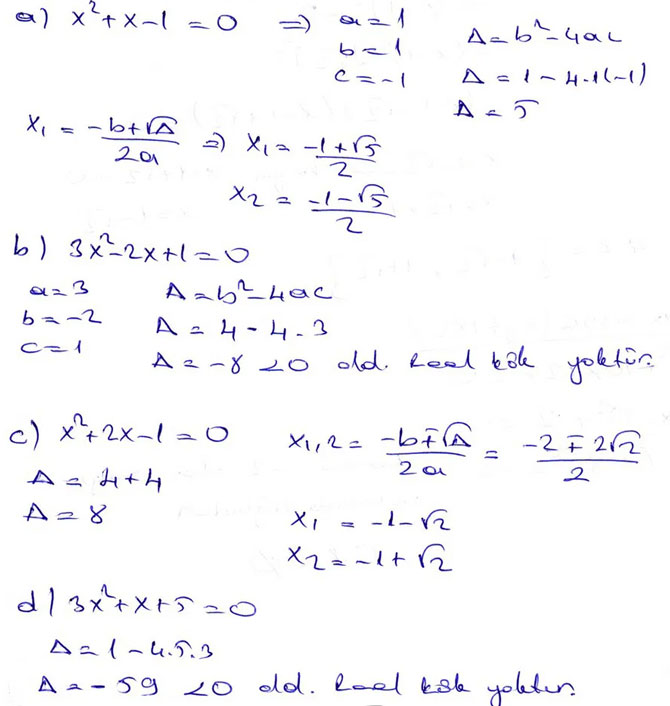 a) x²+x-1=0 ⇒ a=1 Δ=b²-4ac
b=1
c=-1 Δ=1-4.1(-1)
Δ=5
x₁ = (-b+√Δ)/2a ⇒ x₁ = (-1+√5)/2
x₂ = (-1-√5)/2
b) 3x²-2x+1=0
a=3 Δ=b²-4ac
b=-2 Δ=4-4.3
c=1 Δ=-8<0 old. Reel kök yoktur.
c) x²+2x-1=0 x₁,₂ = (-b∓√Δ)/2a = (-2∓2√2)/2
Δ=4+4
Δ=8 x₁ = -1-√2
x₂=-1+√2
d) 3x²+x+5=0
Δ=1-4.5.3
Δ=-59 <0 old. Reel kök yoktur.